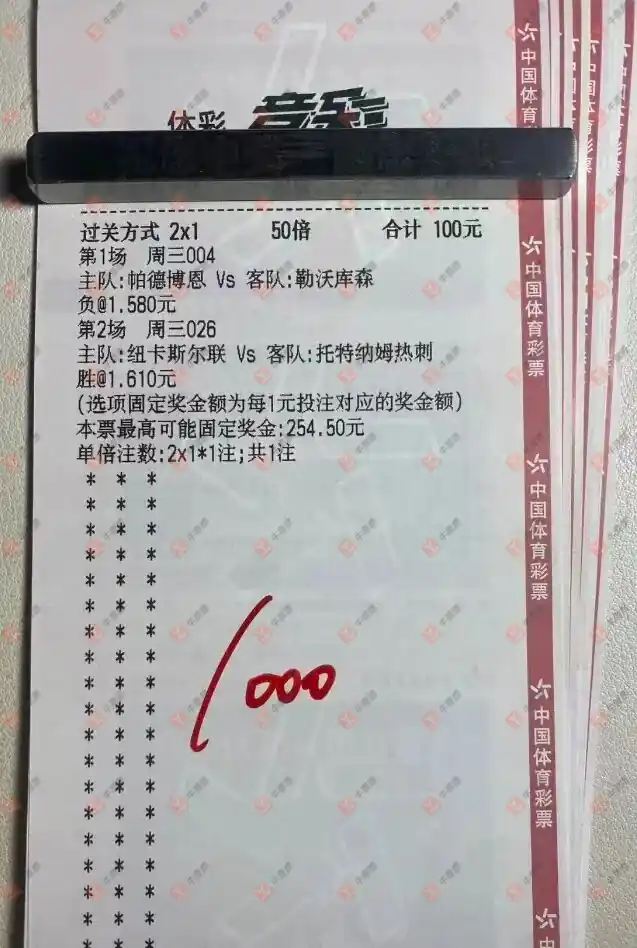 体彩 竞彩
过关方式 2x1 50倍 合计 100元
第1场 周三004
主队:帕德博恩 Vs 客队:勒沃库森
负@1.580元
第2场 周三026
主队:纽卡斯尔联 Vs 客队:托特纳姆热刺
胜@1.610元
(选项固定奖金额为每1元投注对应的奖金额)
本票最高可能固定奖金:254.50元
单倍注数:2x1*1注;共1注
* * *
* * *
* * *
* * *
* * *
* * *
* * *
* * *
* * *
* * *
* * *
* * *
* * *
* * *
* * *
* * *
* * *
* * *
* * *
1000
中国体育彩票
中国体育彩票
中国体育彩票
中国体育彩票
中